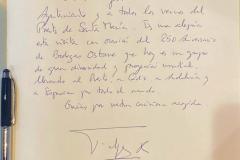 Ayuntamiento y a todos los vecinos del
Puerto de Santa María. Es una alegría
esta visita con ocasión del 250 aniversario
de Bodegas Osborne que hoy es un grupo
de gran diversidad y proyección mundial,
llevando al Puerto, a Cádiz, a Andalucía
y a España por todo el mundo.
Gracias por vuestra cariñosa acogida